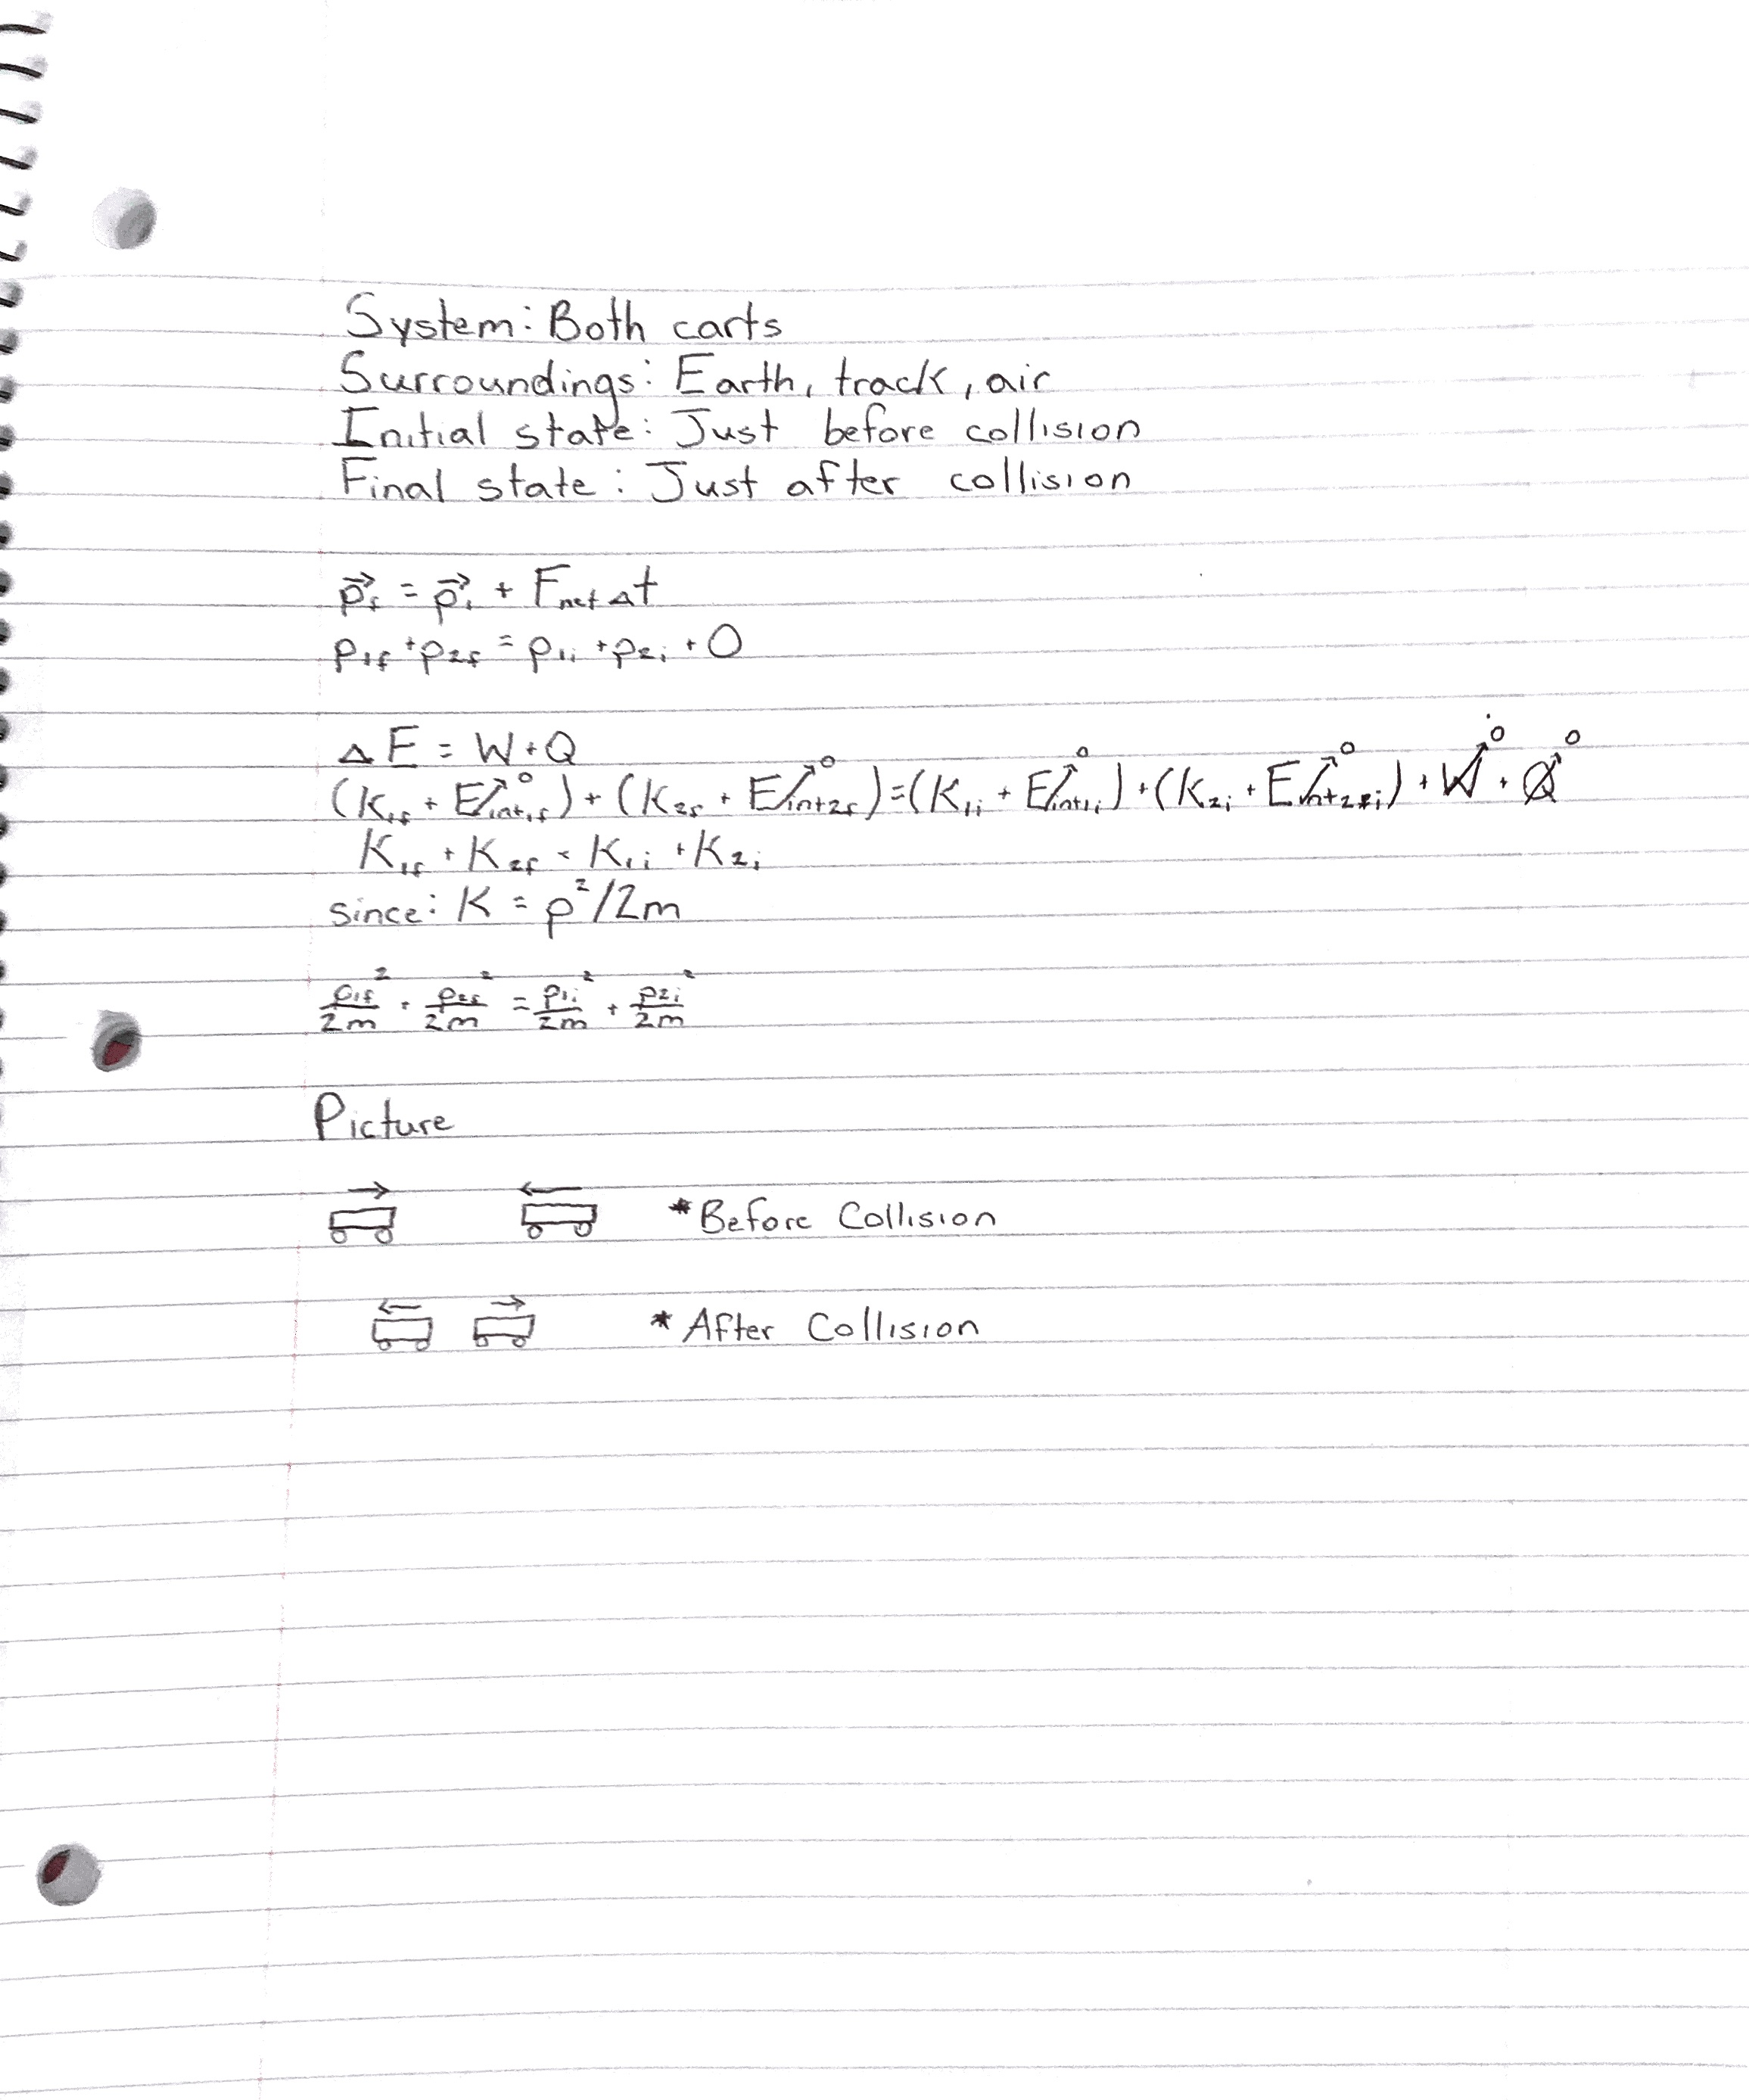 System: Both carts
Surroundings: Earth, track, air
Initial state: Just before collision
Final state: Just after collision
p⃗f = p⃗i + Fnet Δt
p1f + p2f = p1i + p2i + 0
ΔE = W + Q
(K1f + Eint1f→0) + (K2f + Eint2f→0) = (K1i + Eint1i→0) + (K2i + Eint2i→0) + W→0 + Q→0
K1f + K2f = K1i + K2i
since: K = p²/2m
p1f²/2m + p2f²/2m = p1i²/2m + p2i²/2m
Picture
→ ← *Before Collision
← → *After Collision